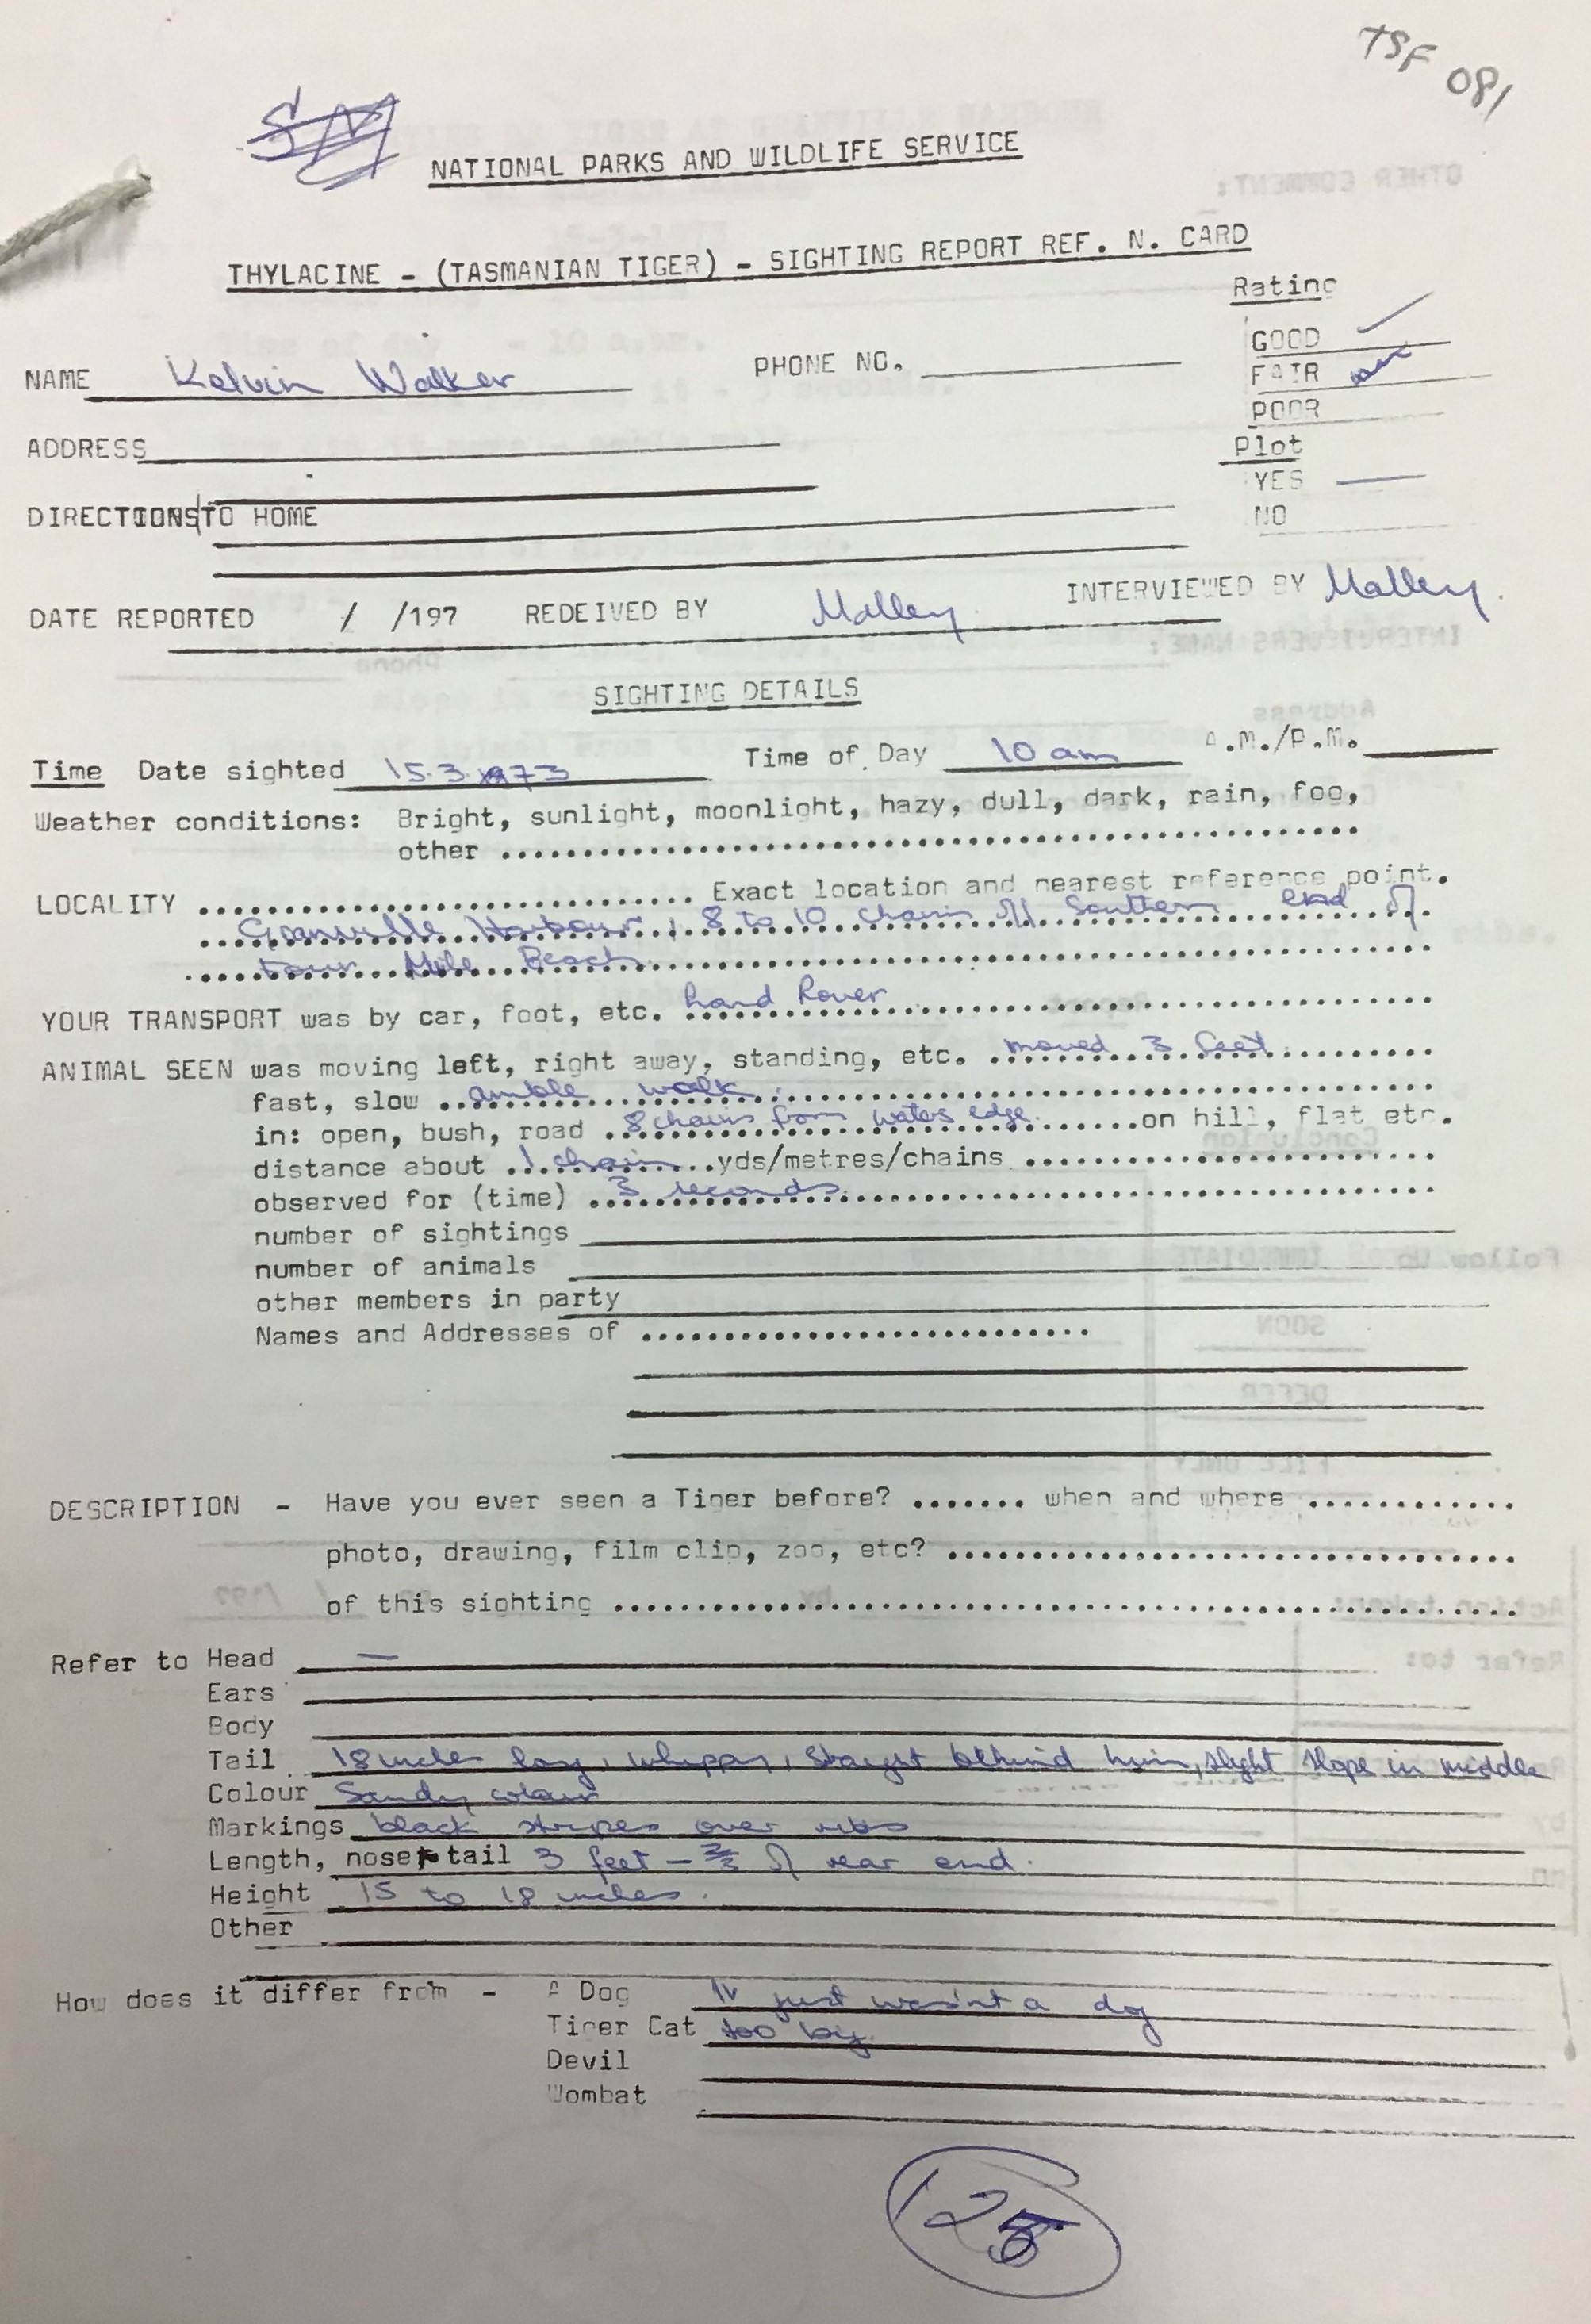 TSF 081
NATIONAL PARKS AND WILDLIFE SERVICE
THYLACINE - (TASMANIAN TIGER) - SIGHTING REPORT REF. N. CARD
Rating
GOOD ✓
FAIR
POOR
Plot
YES —
NO
NAME Kelvin Walker PHONE NO.
ADDRESS
DIRECTIONS TO HOME
DATE REPORTED / /197 REDEIVED BY Malley INTERVIEWED BY Malley.
SIGHTING DETAILS
Time Date sighted 15.3.1973 Time of Day 10 am A.M./P.M.
Weather conditions: Bright, sunlight, moonlight, hazy, dull, dark, rain, fog,
other
LOCALITY Exact location and nearest reference point.
Granville Harbour, 8 to 10 chains off Southern end of
four Mile Beach
YOUR TRANSPORT was by car, foot, etc. Land Rover
ANIMAL SEEN was moving left, right away, standing, etc. moved 3 feet
fast, slow amble walk
in: open, bush, road 8 chains from waters edge. on hill, flat etc.
distance about 1 chain yds/metres/chains
observed for (time) 3 seconds.
number of sightings
number of animals
other members in party
Names and Addresses of
DESCRIPTION - Have you ever seen a Tiger before? when and where
photo, drawing, film clip, zoo, etc?
of this sighting
Refer to Head —
Ears
Body
Tail 18 inches long, whippy, straight behind him, slight slope in middle
Colour Sandy colour
Markings black stripes over ribs
Length, nose tail 3 feet - 2/3 of rear end.
Height 15 to 18 inches.
Other
How does it differ from - A Dog It just wasn't a dog
Tiger Cat too big.
Devil
Wombat